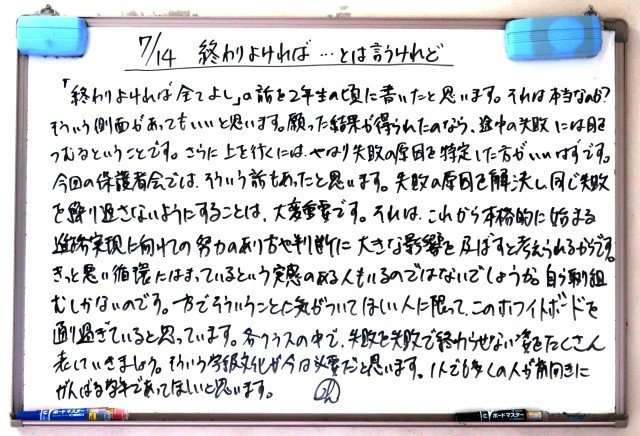 7/14 終わりよければ…とは言うけれど
「終わりよければ全てよし」の話を2年生の頃に書いたと思います。それは本当なのか?
そういう側面があってもいいと思います。願った結果が得られたのなら、途中の失敗には目を
つむるということです。さらに上を行くには、やはり失敗の原因を特定した方がいいはずです。
今回の保護者会では、そういう話もあったと思います。失敗の原因を解決し同じ失敗
を繰り返さないようにすることは、大変重要です。それは、これから本格的に始まる
進路実現に向けての努力のあり方や判断に大きな影響を及ぼすと考えられるからです。
きっと悪い循環にはまっているという実感のある人もいるのではないでしょうか。自ら取り組
むしかないのです。一方でそういうことに気がついてほしい人に限って、このホワイトボードを
通り過ぎていると思っています。各クラスの中で、失敗を失敗で終わらせない姿をたくさん
表していきましょう。そういう学級文化が今は必要だと思います。1人でも多くの人が前向きに
がんばる学年であってほしいと思います。
ボードマスター
ボードマスター